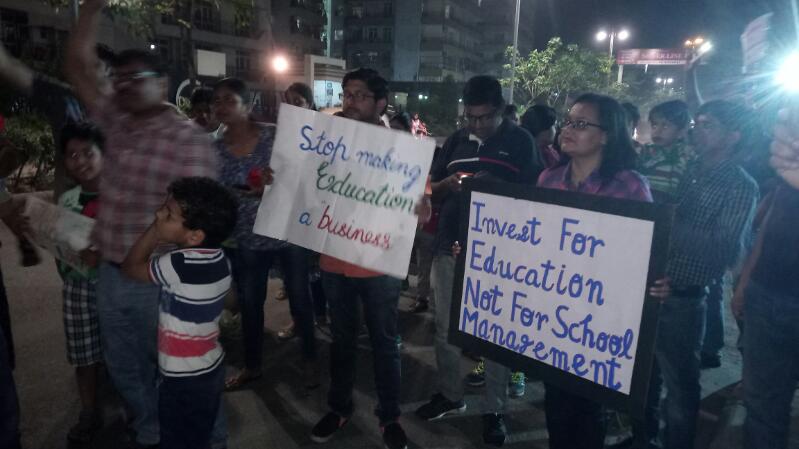 Stop making
Education
a business
Invest For
Education
Not For School
Management